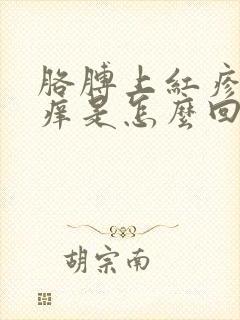 胳膊上紅疹
痒是怎麼回
胡宗南